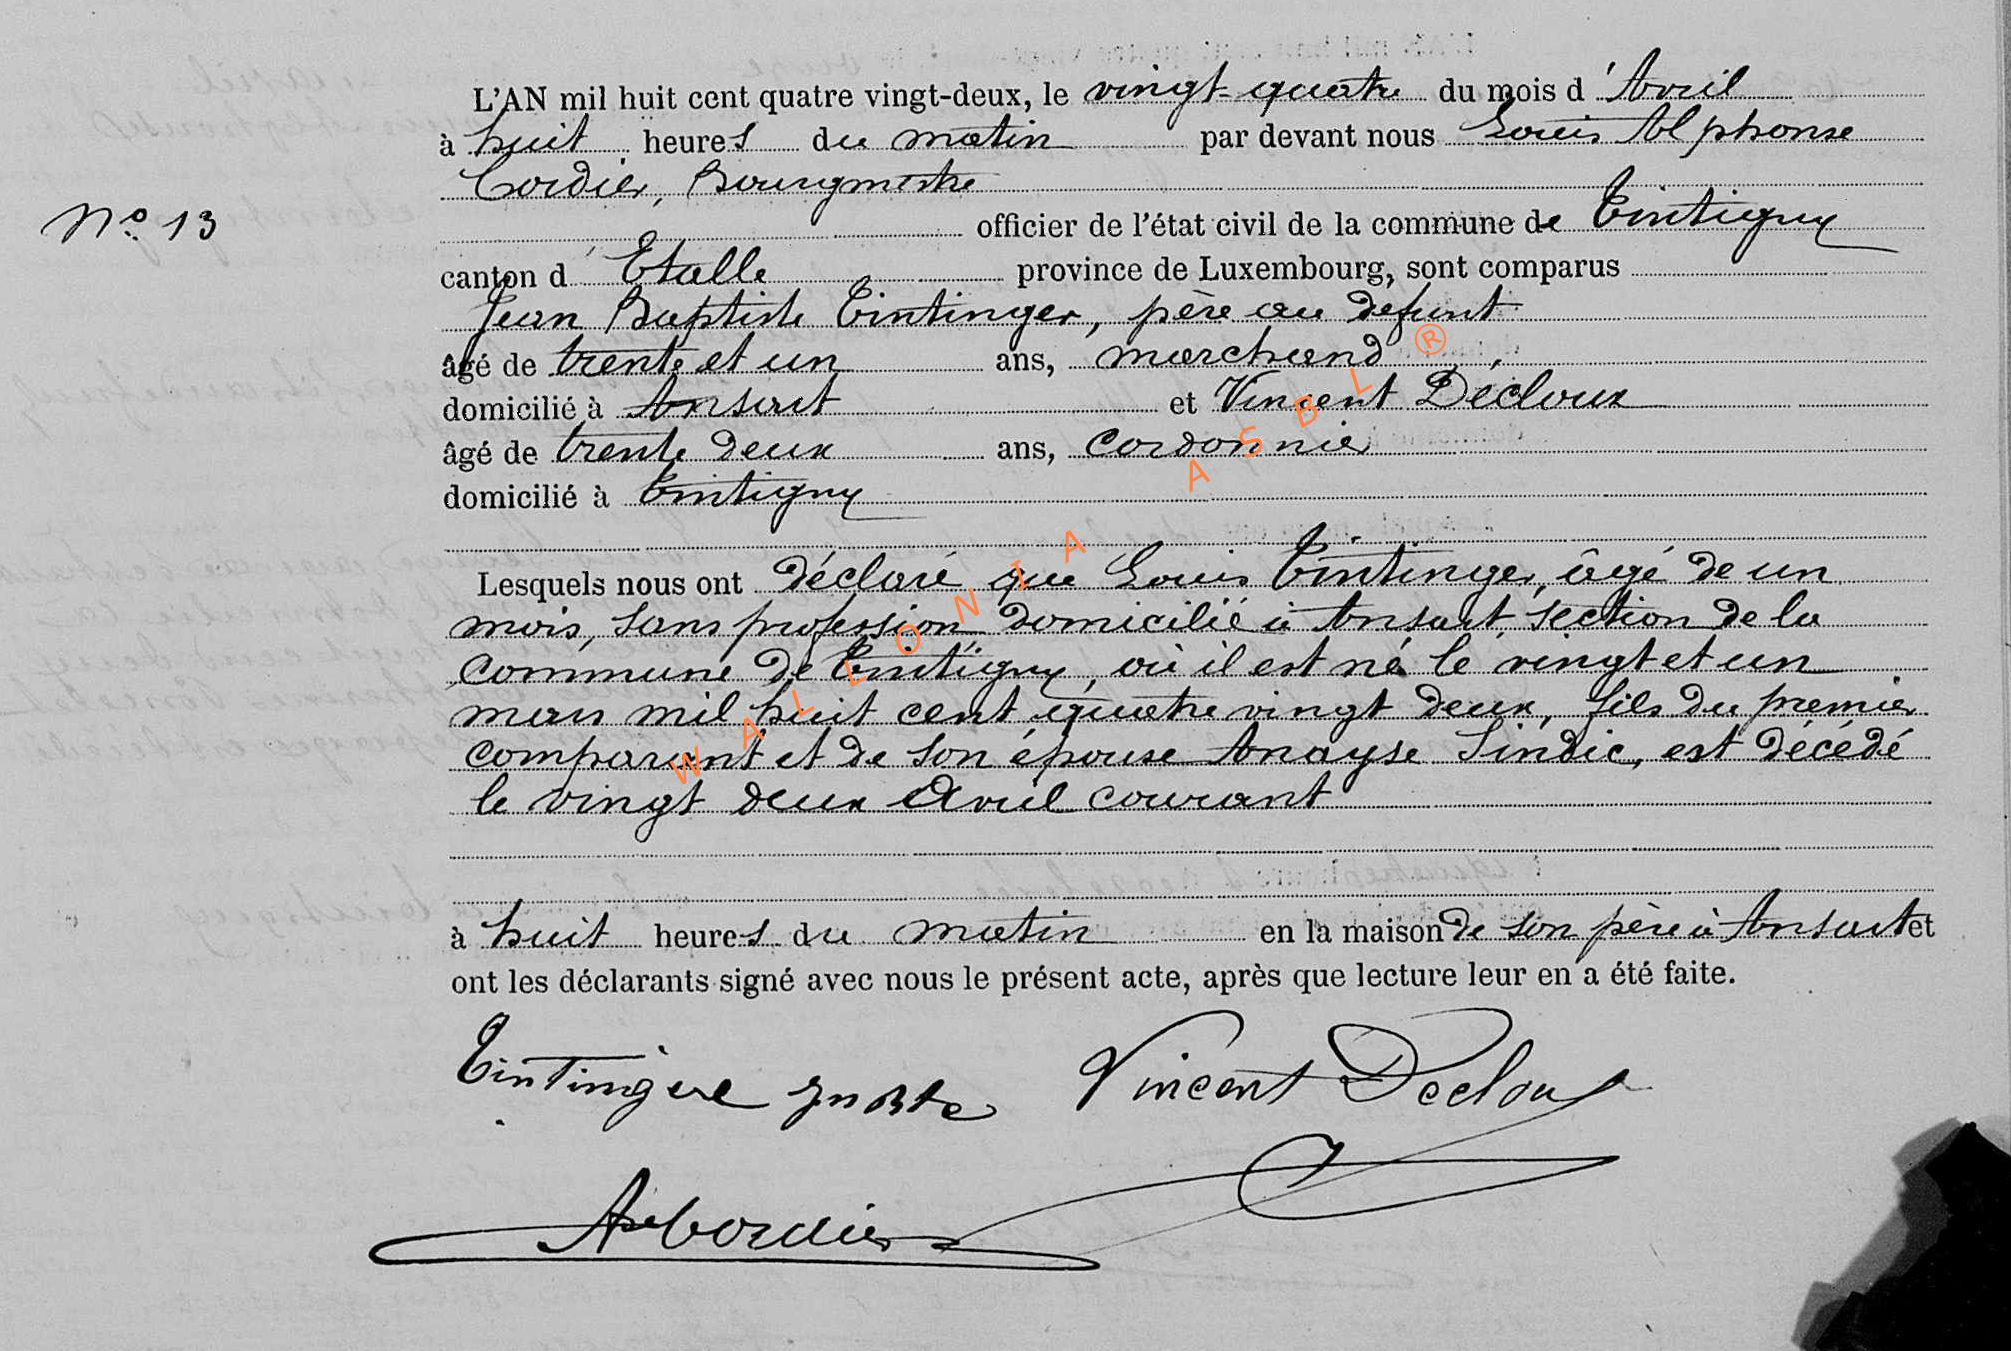 L'AN mil huit cent quatre vingt-deux, le vingt-quatre du mois d'Avril
à huit heures du matin par devant nous Louis Alphonse
Cordier, Bourgmestre
N° 13
officier de l'état civil de la commune de Tintigny
canton d'Etalle province de Luxembourg, sont comparus
Jean Baptiste Tintinger, père au defunt
âgé de trente et un ans, marchand,
domicilié à Ansart et Vincent Décloux
âgé de trente deux ans, cordonnier
domicilié à Tintigny
Lesquels nous ont déclaré que Louis Tintinger, âgé de un
mois, sans profession domicilié à Ansart, section de la
commune de Tintigny, où il est né le vingt et un
mars mil huit cent quatre vingt deux, fils du premier
comparant et de son épouse Anayse Sindic, est décédé
le vingt deux Avril courant
à huit heures du matin en la maison de son père à Ansart et
ont les déclarants signé avec nous le présent acte, après que lecture leur en a été faite.
Tintingere Jn Bte Vincent Decloux
Cordier
WALLONIA ASBL ®